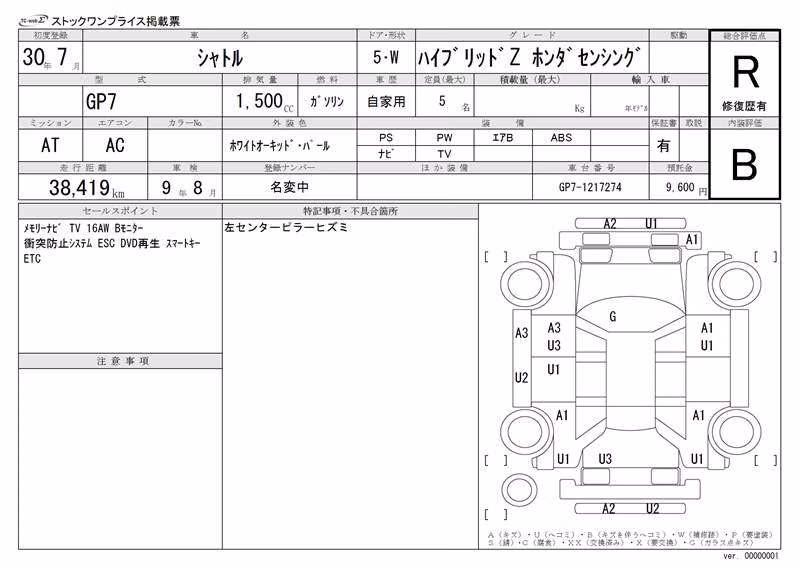 TC-webΣ ストックワンプライス掲載票
初度登録 車名 ドア・形状 グレード 駆動 総合評価点
30年 7月 シャトル 5・W ハイブリッドZ ホンダセンシング R
修復歴有
型式 排気量 燃料 車歴 定員(最大) 積載量(最大) 輸入車
GP7 1,500CC ガソリン 自家用 5名 Kg 年モデル
ミッション エアコン カラーNo. 外装色 装備 保証書 取説 内装評価
AT AC ホワイトオーキッド・パール PS PW エアB ABS 有 B
ナビ TV
走行距離 車検 登録ナンバー ほか装備 車台番号 預託金
38,419km 9年 8月 名変中 GP7-1217274 9,600円
セールスポイント
メモリーナビ TV 16AW Bモニター
衝突防止システム ESC DVD再生 スマートキー
ETC
注意事項
特記事項・不具合箇所
左センターピラーヒズミ
A2 U1
A1
[ ] [ ]
G
A3 A3 A1
U3 U1
U2 U1
A1 A1
[ ] U1 U3 U1 [ ]
A2 U2
[ ]
A(キズ)・U(ヘコミ)・B(キズを伴うヘコミ)・W(補修跡)・P(要塗装)
S(錆)・C(腐食)・XX(交換済み)・X(要交換)・G(ガラス点キズ)
ver. 00000001